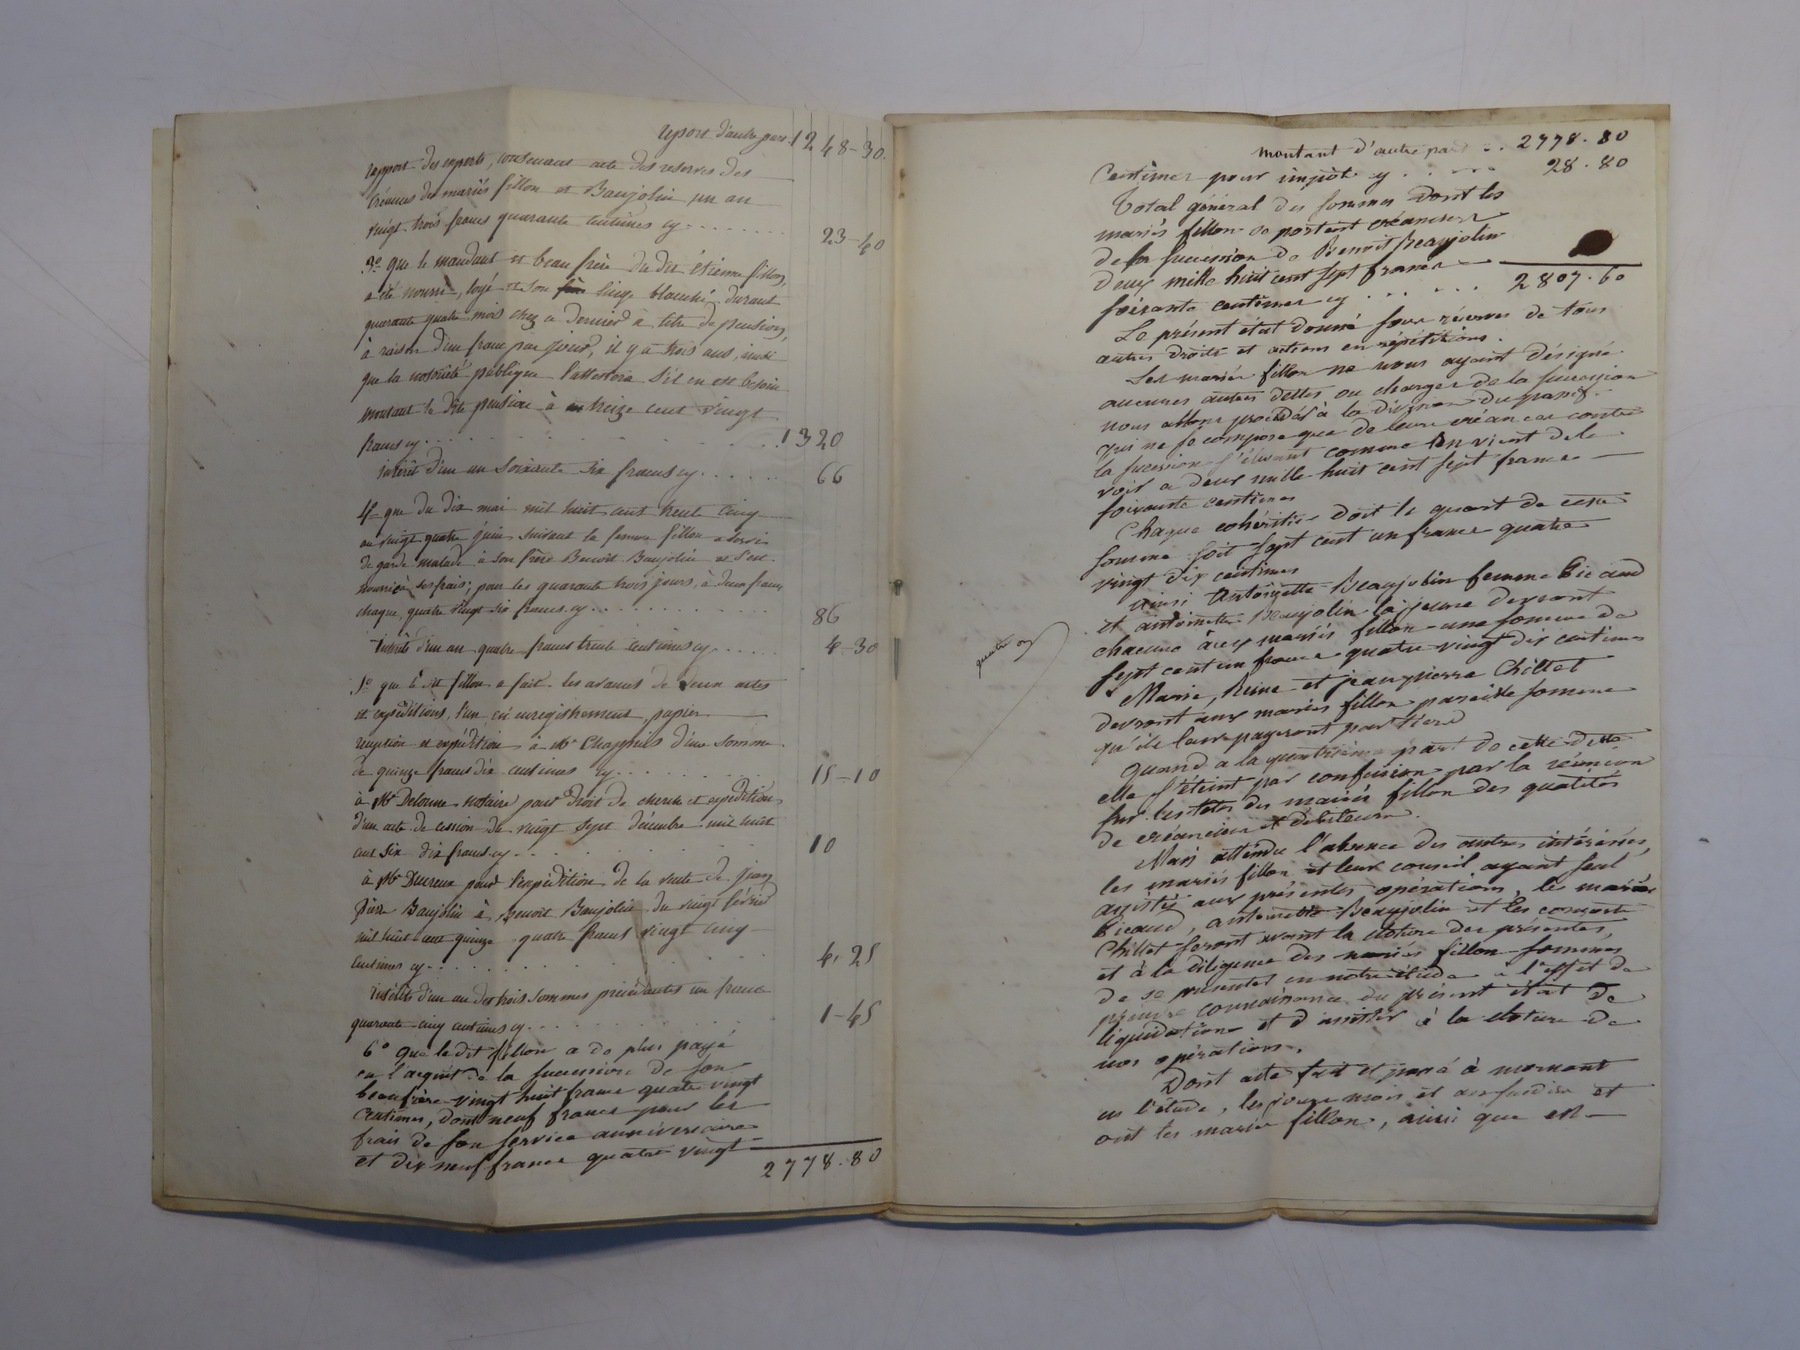 report d'autre part. 1248-30.
rapport des experts, contenant acte des reserves des
créances des mariés fillon et Baujolin un an
vingt trois francs quarante centimes cy 23-40
3º que le mandant et beau frère du dit étienne fillon,
a été nourri, logé et son linge blanchi durant
quarante quatre mois chez ce dernier à titre de pension,
à raison d'un franc par jour, il y a trois ans, ainsi
que la notoriété publique l'attestera s'il en est besoin
montant la dite pension à treize cent vingt
francs cy. 1320
intérêt d'un an soixante six francs cy. 66
4º que du dix mai mil huit cent trente cinq
au vingt quatre juin suivant la femme fillon a servi
de garde malade à son frère Benoit Baujolin et s'est
nourrie à ses frais; pour les quarante trois jours, à deux francs
chaque, quatre vingt six francs cy. 86
intérêts d'un an quatre francs trente centimes cy. 4-30
5º que le dit fillon a fait les avances de deux actes
et expéditions, l'un en enregistrement, papier
réception et expédition à Me Chapuis d'une somme
de quinze francs dix centimes cy. 15-10
à Me Delorme notaire pour droit de cherche et expédition
d'un acte de cession du vingt sept décembre mil huit
cent six dix francs cy. 10
à Me Ducreux pour l'expédition de la vente de jean
Pierre Baujolin à Benoit Baujolin du vingt février
mil huit cent quinze quatre francs vingt cinq
centimes cy. 4.25
intérêts d'un an des trois sommes précédentes un franc
quarante cinq centimes cy. 1-45
6º que le dit fillon a de plus payé
en l'acquit de la succession de son
beaufrère vingt huit francs quatre vingt
centimes, dont neuf francs pour les
frais de son service anniversaire
et dix neuf francs quatre vingt
2778.80
montant d'autre part .. 2778.80
Centimes pour impôt cy 28.80
Total général des sommes dont les
mariés fillon se portent créanciers
de la succession de Benoit Beaujolin
deux mille huit cent sept francs
soixante centimes cy 2807.60
Le présent état donné sous réserves de tous
autres droits et actions en répétitions.
Les mariés fillon ne nous ayant désigné
aucunes autres dettes ou charges de la succession
nous allons procéder à la division du passif.
qui ne se compose que de leur créance contre
la succession s'élevant comme on vient de le
voir a deux mille huit cent sept francs
soixante centimes
Chaque cohéritier doit le quart de cette
somme soit sept cent un francs quatre
vingt dix centimes
ainsi Antoinette Beaujolin femme Bicaud
et antoinette Beaujolin la jeune devront
chacune aux mariés fillon une somme de
sept cent un francs quatre vingt dix centimes
Marie, Reine et jeanpierre Chillet
devront aux mariés fillon pareille somme
qu'ils leur payeront par tiers
quand a la quatrième part de cette dette
elle s'éteint par confusion par la réunion
sur les têtes des mariés fillon des qualités
de créancier et débiteurs.
Mais attendu l'absence des autres intéressés,
les mariés fillon et leur conseil ayant seul
assisté aux présentes opérations, les mariés
Bicaud, antoinette Beaujolin et les consorts
Chillet seront avant la cloture des présentes,
et à la diligence des mariés fillon sommés
de se présenter en notre étude a l'effet de
prendre connaissance du présent état de
liquidation et d'assister à la cloture de
nos opérations.
Dont acte fait et passé à mornant
en l'étude, les jour mois et an susdits et
ont les mariés fillon, ainsi que est